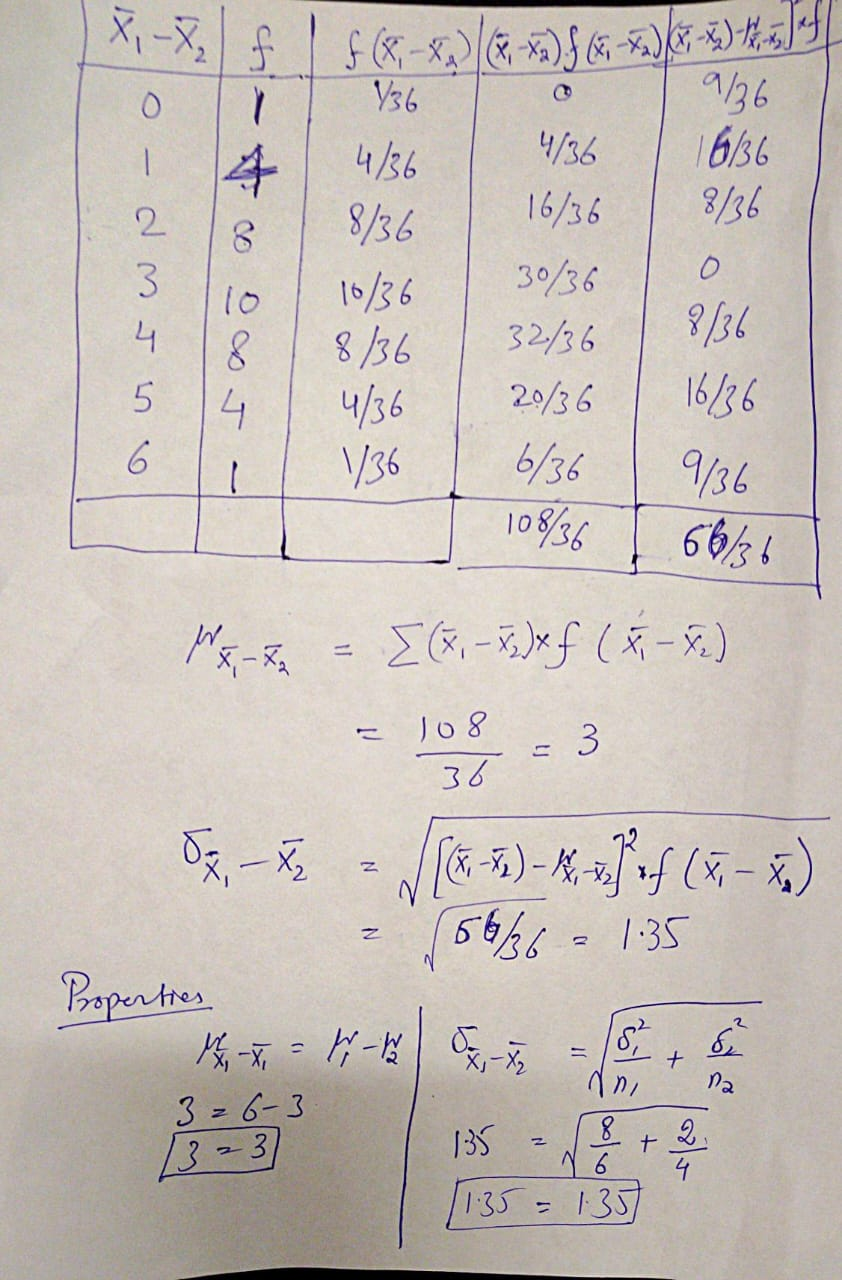 X̄₁-X̄₂ | f | f(X̄₁-X̄₂) | (X̄₁-X̄₂)f(X̄₁-X̄₂) | [(X̄₁-X̄₂)-μX̄₁-X̄₂]²×f
0 | 1 | 1/36 | 0 | 9/36
1 | 4 | 4/36 | 4/36 | 16/36
2 | 8 | 8/36 | 16/36 | 8/36
3 | 10 | 10/36 | 30/36 | 0
4 | 8 | 8/36 | 32/36 | 8/36
5 | 4 | 4/36 | 20/36 | 16/36
6 | 1 | 1/36 | 6/36 | 9/36
108/36 | 66/36
μX̄₁-X̄₂ = Σ(X̄₁-X̄₂)×f(X̄₁-X̄₂)
= 108/36 = 3
σX̄₁-X̄₂ = √[(X̄₁-X̄₂)-μX̄₁-X̄₂]²×f(X̄₁-X̄₂)
= √66/36 = 1.35
Properties
μX̄₁-X̄₁ = μ₁-μ₂
3 = 6-3
3 = 3
σX̄₁-X̄₂ = √σ₁²/n₁ + σ₂²/n₂
1.35 = √8/6 + 2/4
1.35 = 1.35